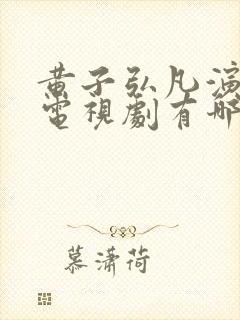 黄子弘凡演
電視劇有哪
慕瀟荷